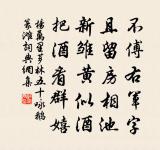 不傅右軍字
且留房相池
新雛黃似酒
把酒看群嬉
楊萬里芗林五十詠鵝
灘詞典網集